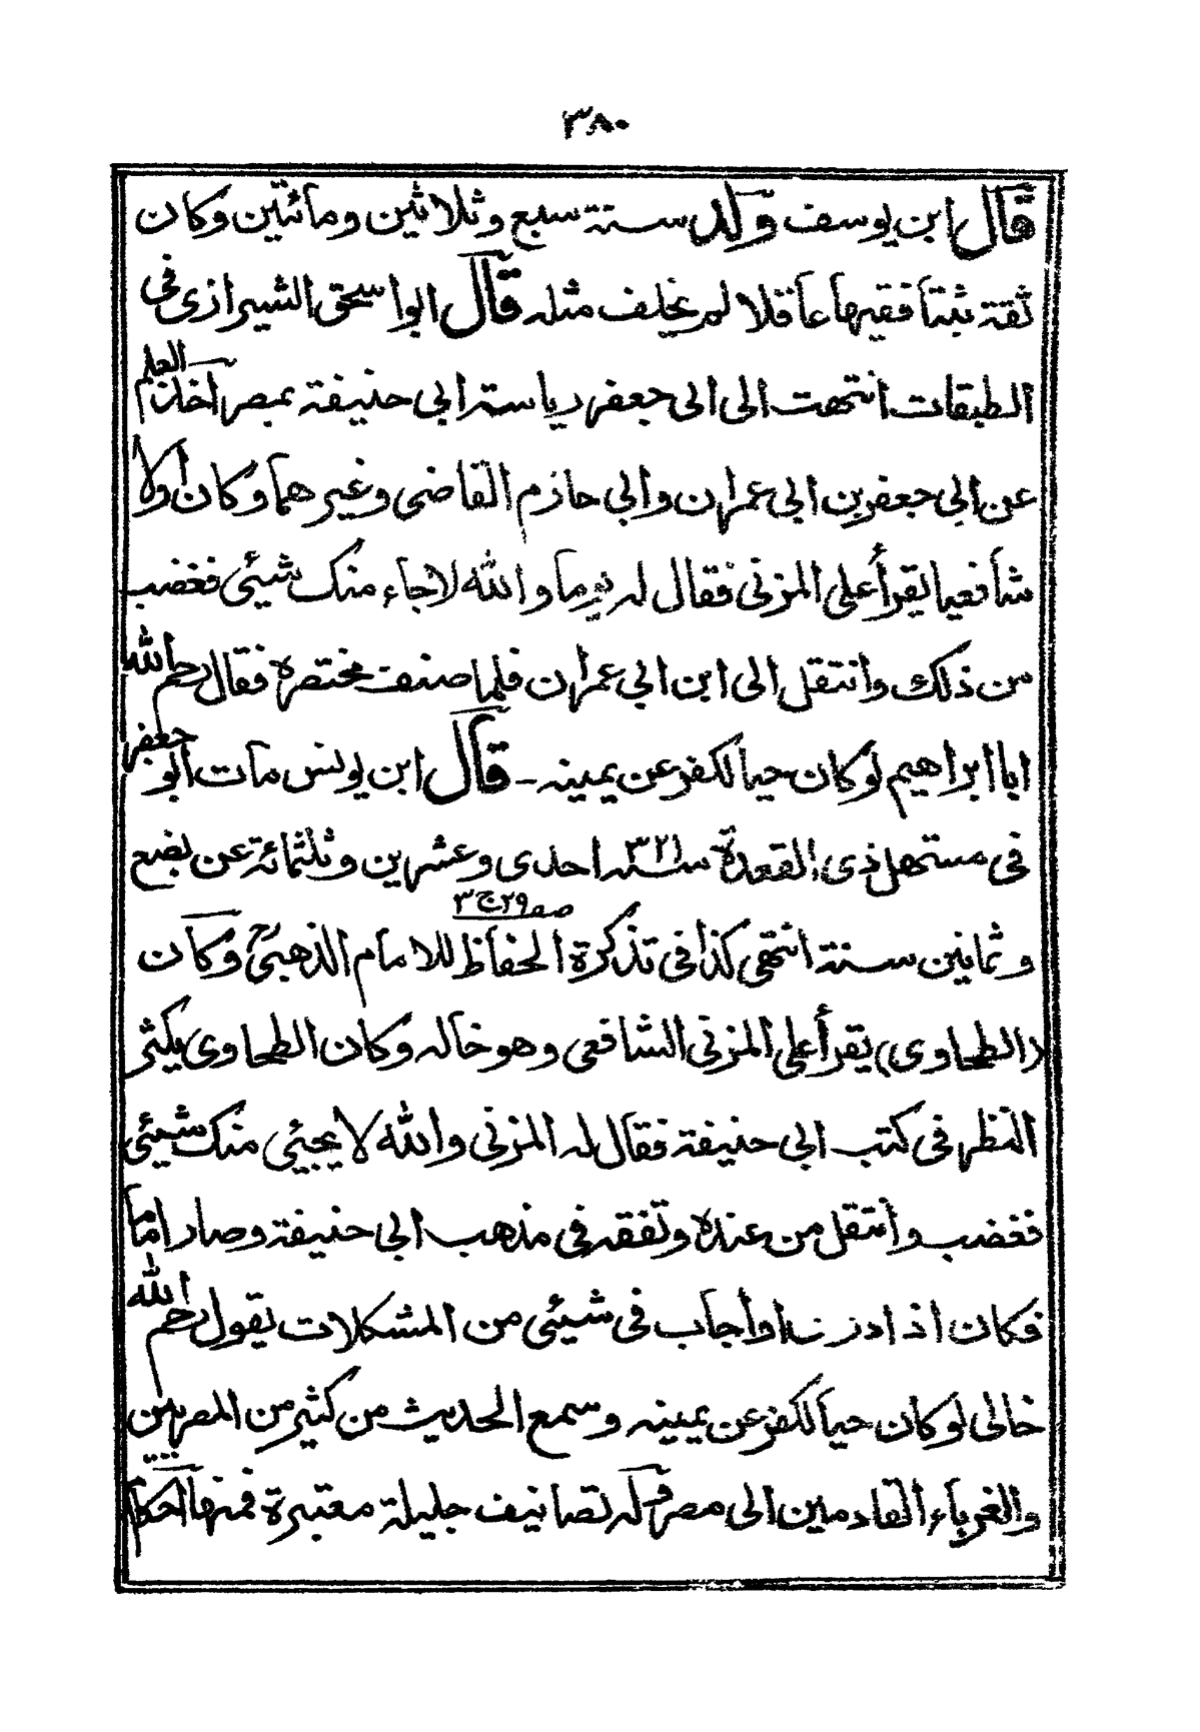 ٣٨٠
قال ابن يوسف ولد سنة سبع وثلاثين ومائتين وكان
ثقة ثبتا فقيها عاقلا لم يخلف مثله قال ابوا سحق الشيرازى فى
الطبقات انتهت الى ابى جعفر رياسة ابى حنيفة بمصر أخذ العلم
عن ابى جعفر بن ابى عمران وابى حازم القاضى وغيرهما وكان اولا
شافعيا يقرأ على المزنى فقال له يوما والله لا جاء منك شيئى فغضب
من ذلك وانتقل الى ابن ابى عمران فلما صنف مختصره فقال رحم الله
ابا ابراهيم لو كان حيا لكفر عن يمينه - قال ابن يونس مات ابو جعفر
فى مستهل ذى القعدة سنة ٣٢١ احدى وعشرين وثلثمائة عن بضع
وثمانين سنة انتهى كذا فى تذكرة الحفاظ للامام الذهبىؒ صـ٢٩ ج ٣ وكان
(الطحاوى) يقرأ على المزنى الشافعى وهو خاله وكان الطحاوى يكثر
النظر فى كتب ابى حنيفة فقال له المزنى والله لا يجيئى منك شيئى
فغضب وانتقل من عنده وتفقه فى مذهب ابى حنيفة وصار اماما
فكان اذا درس او أجاب فى شيئى من المشكلات يقول رحم الله
خالى لو كان حيا لكفر عن يمينه وسمع الحديث من كثير من المصريين
والغرباء القادمين الى مصر وله تصانيف جليلة معتبرة فمنها احكام